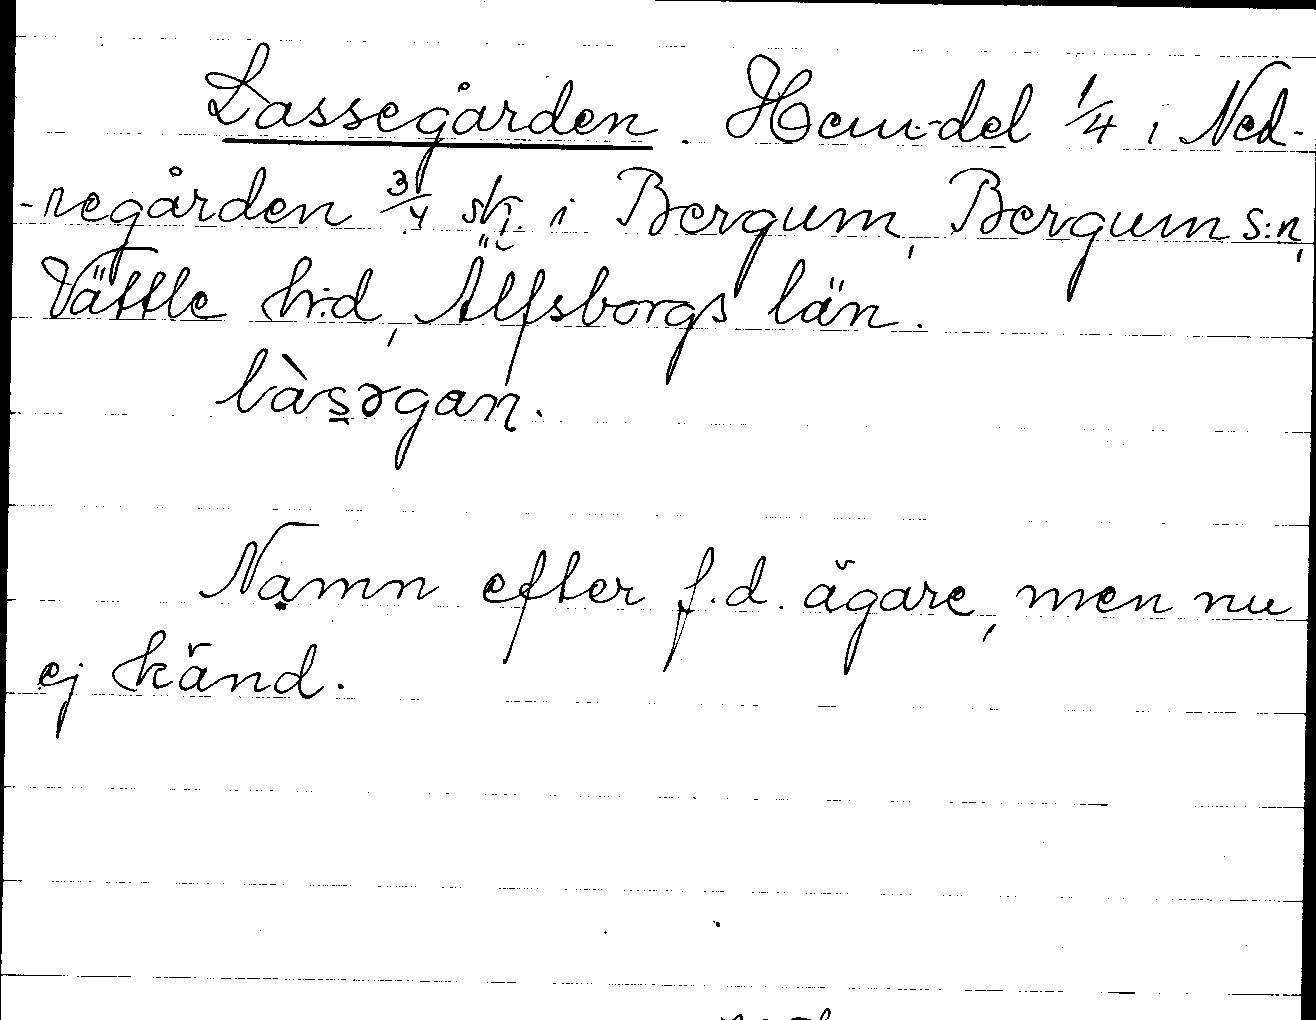 Lassegården. Hem-del 1/4 i Ned-
-regården 3/4 sk. i Bergum, Bergum s:n,
Vättle h:d, Älfsborgs län.
làs̱əgan.
Namn efter f.d. ägare, men nu
ej känd.